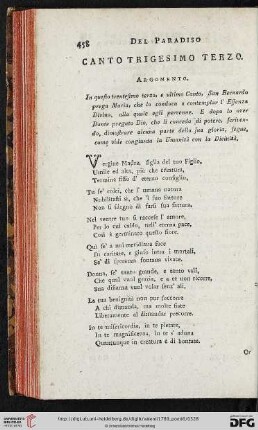 458
DEL PARADISO
CANTO TRIGESIMO TERZO.
ARGOMENTO.
In questo trentesimo terzo, e ultimo Canto, San Bernardo
prega Maria, che lo conduca a contemplar l' Essenza
Divina, alla quale egli pervenne. E dopo lo aver
Dante pregato Dio, che li conceda di potere, scriven-
do, dimostrare alcuna parte della sua gloria; segue,
come vide congiunta la Umanità con la Divinità.
Vergine Madre, figlia del tuo Figlio,
Umile ed alta, più che creatura,
Termine fisso d' eterno consiglio,
Tu se' colei, che l' umana natura
Nobilitasti sì, che 'l suo fattore
Non si sdegnò di farsi sua fattura.
Nel ventre tuo si raccese l' amore,
Per lo cui caldo, nell' eterna pace,
Così è germinato questo fiore.
Qui se' a noi meridiana face
Di caritate, e giuso intra i mortali,
Se' di speranza fontana vivace.
Donna, se' tanto grande, e tanto vali,
Che qual vuol grazia, e a te non ricorre,
Sua disianza vuol volar senz' ali.
La tua benignità non pur soccorre
A chi dimanda, ma molte fiate
Liberamente al dimandar precorre.
In te misericordia, in te pietate,
In te magnificenza, in te s' aduna
Quantunque in creatura è di bontate.
In
http://digi.ub.uni-heidelberg.de/diglit/
Universitätsbibliothek Heidelberg
gefördert durch die
DFG